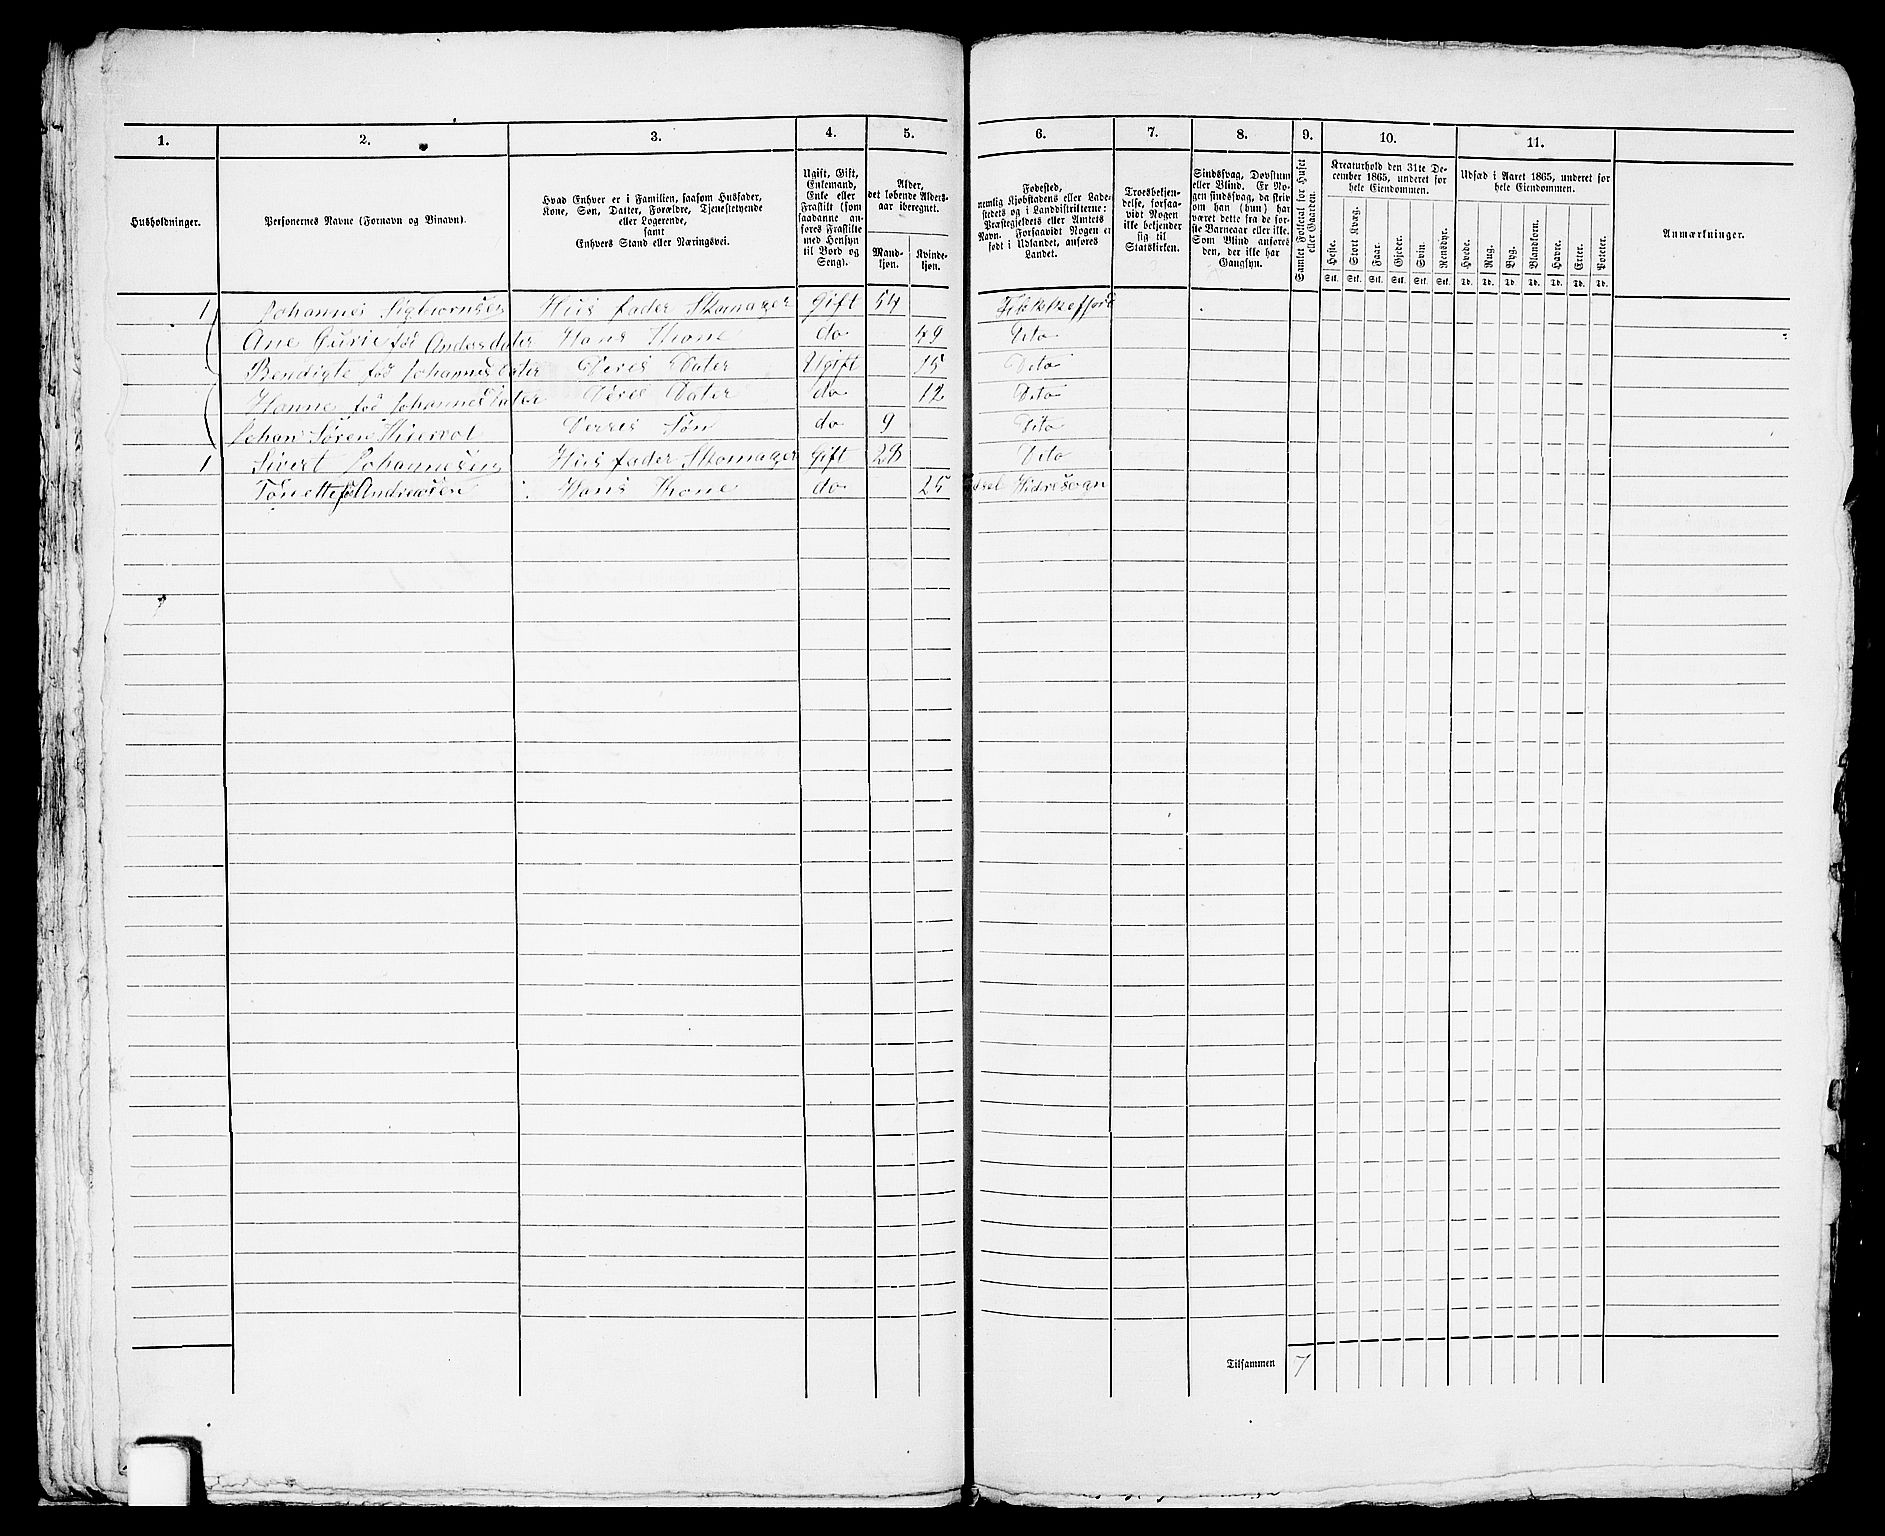 1. 2. 3. 4. 5. 6. 7. 8. 9. 10. 11.
Husholdninger.
Personernes Navne (Fornavn og Binavn).
Hvad Enhver er i Familien, saasom Husfader,
Kone, Søn, Datter, Forældre, Tjenestetyende
eller Logerende,
samt
Enhvers Stand eller Næringsvei.
Ugift, Gift,
Enkemand,
Enke eller
Fraskilt (som
saadanne an-
føres Fraskilte
med Hensyn
til Bord og
Seng).
Alder,
det løbende Alders-
aar iberegnet.
Mand-
kjøn.
Kvinde-
kjøn.
Fødested,
nemlig Kjøbstadens eller Lade-
stedets og i Landdistrikterne:
Præstegjeldets eller Amtets
Navn. Forsaavidt Nogen er
født i Udlandet, anføres
Landet.
Troesbekjen-
delse, forsaa-
vidt Nogen
ikke bekjender
sig til
Statskirken.
Sindssvag, Døvstum
eller Blind. Er No-
gen sindssvag, da skriv
om han (hun) har
været dette fra de før-
ste Barneaar eller ikke.
Som Blind anføres
den, der ikke har
Gangsyn.
Samlet Folketal for Huset
eller Gaarden.
Kreaturhold den 31te De-
cember 1865, underet for
hele Eiendommen.
Heste. Stort Kvæg. Faar. Gjeder. Svin. Rensdyr.
Stk. Stk. Stk. Stk. Stk. Stk.
Udsæd i Aaret 1865, underet for
hele Eiendommen.
Hvede. Rug. Byg. Blandkorn. Havre. Erter. Poteter.
Td. Td. Td. Td. Td. Td. Td.
Anmærkninger.
1 Johannes Sigbiørnsen Hus fader Skomager Gift 54
Ane Gurie fød Andersdater Hans Kone do 49 Dito
Bendigte fød Johannesdater Deres Dater Ugift 15 Dito
Hanne fød Johannesdater Deres Dater do 12 Dito
Johan Søren Søn do 9 Dito
1 Sivert Johannesen Hus fader Skomager Gift 28 Dito
Tønette fø Andreasen Hans Kone do 25
Tilsammen 7